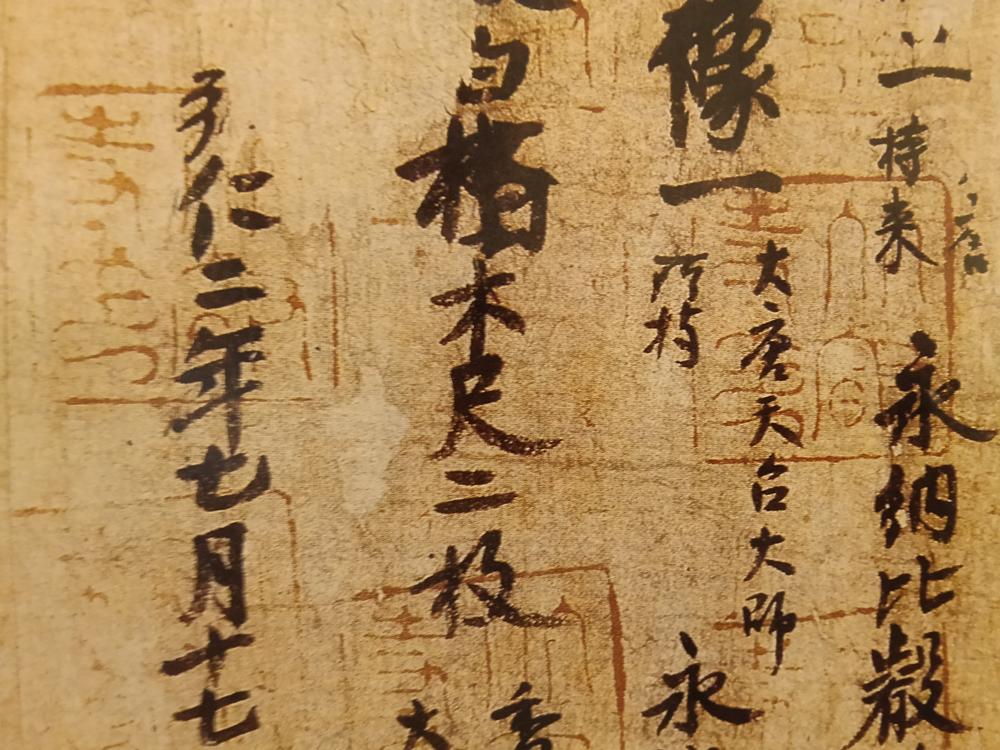 一 持来 永納比叡
像一 大唐天台大師
所持 永
白栢木尺二枚
香
大
弘仁二年七月十七